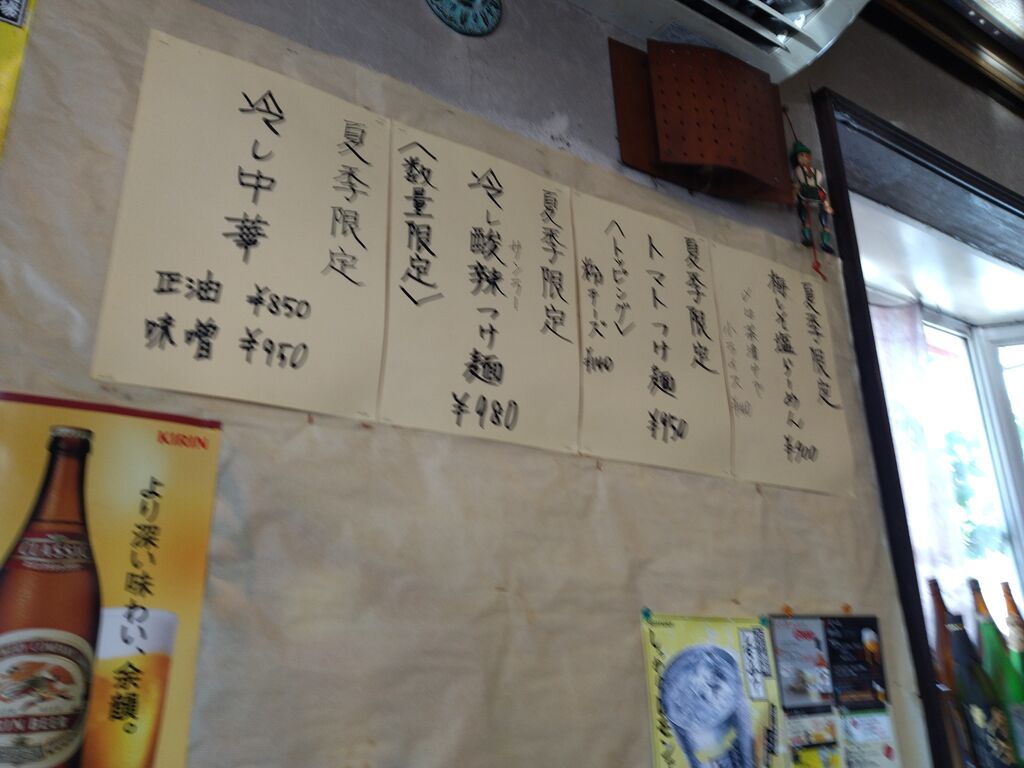 夏季限定
梅しそ塩らーめん
¥900
〆は茶漬けで
小ライス ¥140
夏季限定
トマトつけ麺
¥950
〈トッピング〉
粉チーズ ¥140
夏季限定
サンラー
冷し酸辣つけ麺
¥980
〈数量限定〉
夏季限定
冷し中華
正油 ¥850
味噌 ¥950
KIRIN
より深い味わい、余韻。
CLASSIC